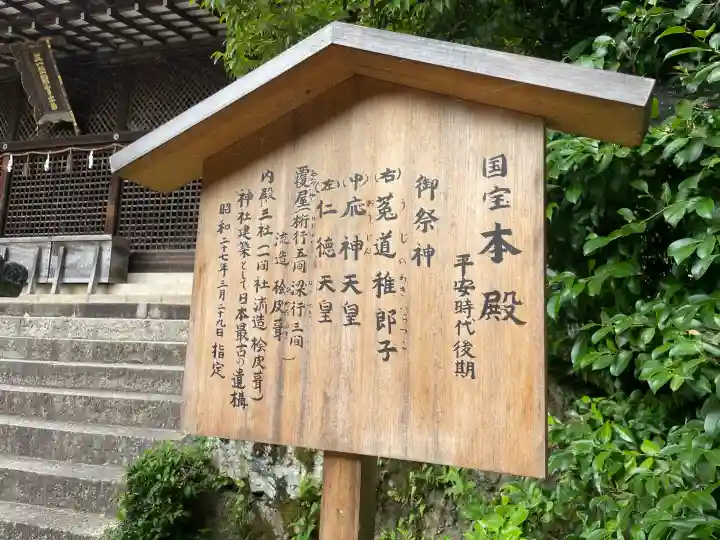 国宝本殿
平安時代後期
御祭神
(右)菟道稚郎子
うじのわきいらつこ
(中)応神天皇
おうじん
(左)仁徳天皇
覆屋(桁行五間 梁行三間
流造 桧皮葺)
内殿三社(一間社 流造 桧皮葺)
神社建築として日本最古の遺構
昭和二十七年三月二十九日 指定